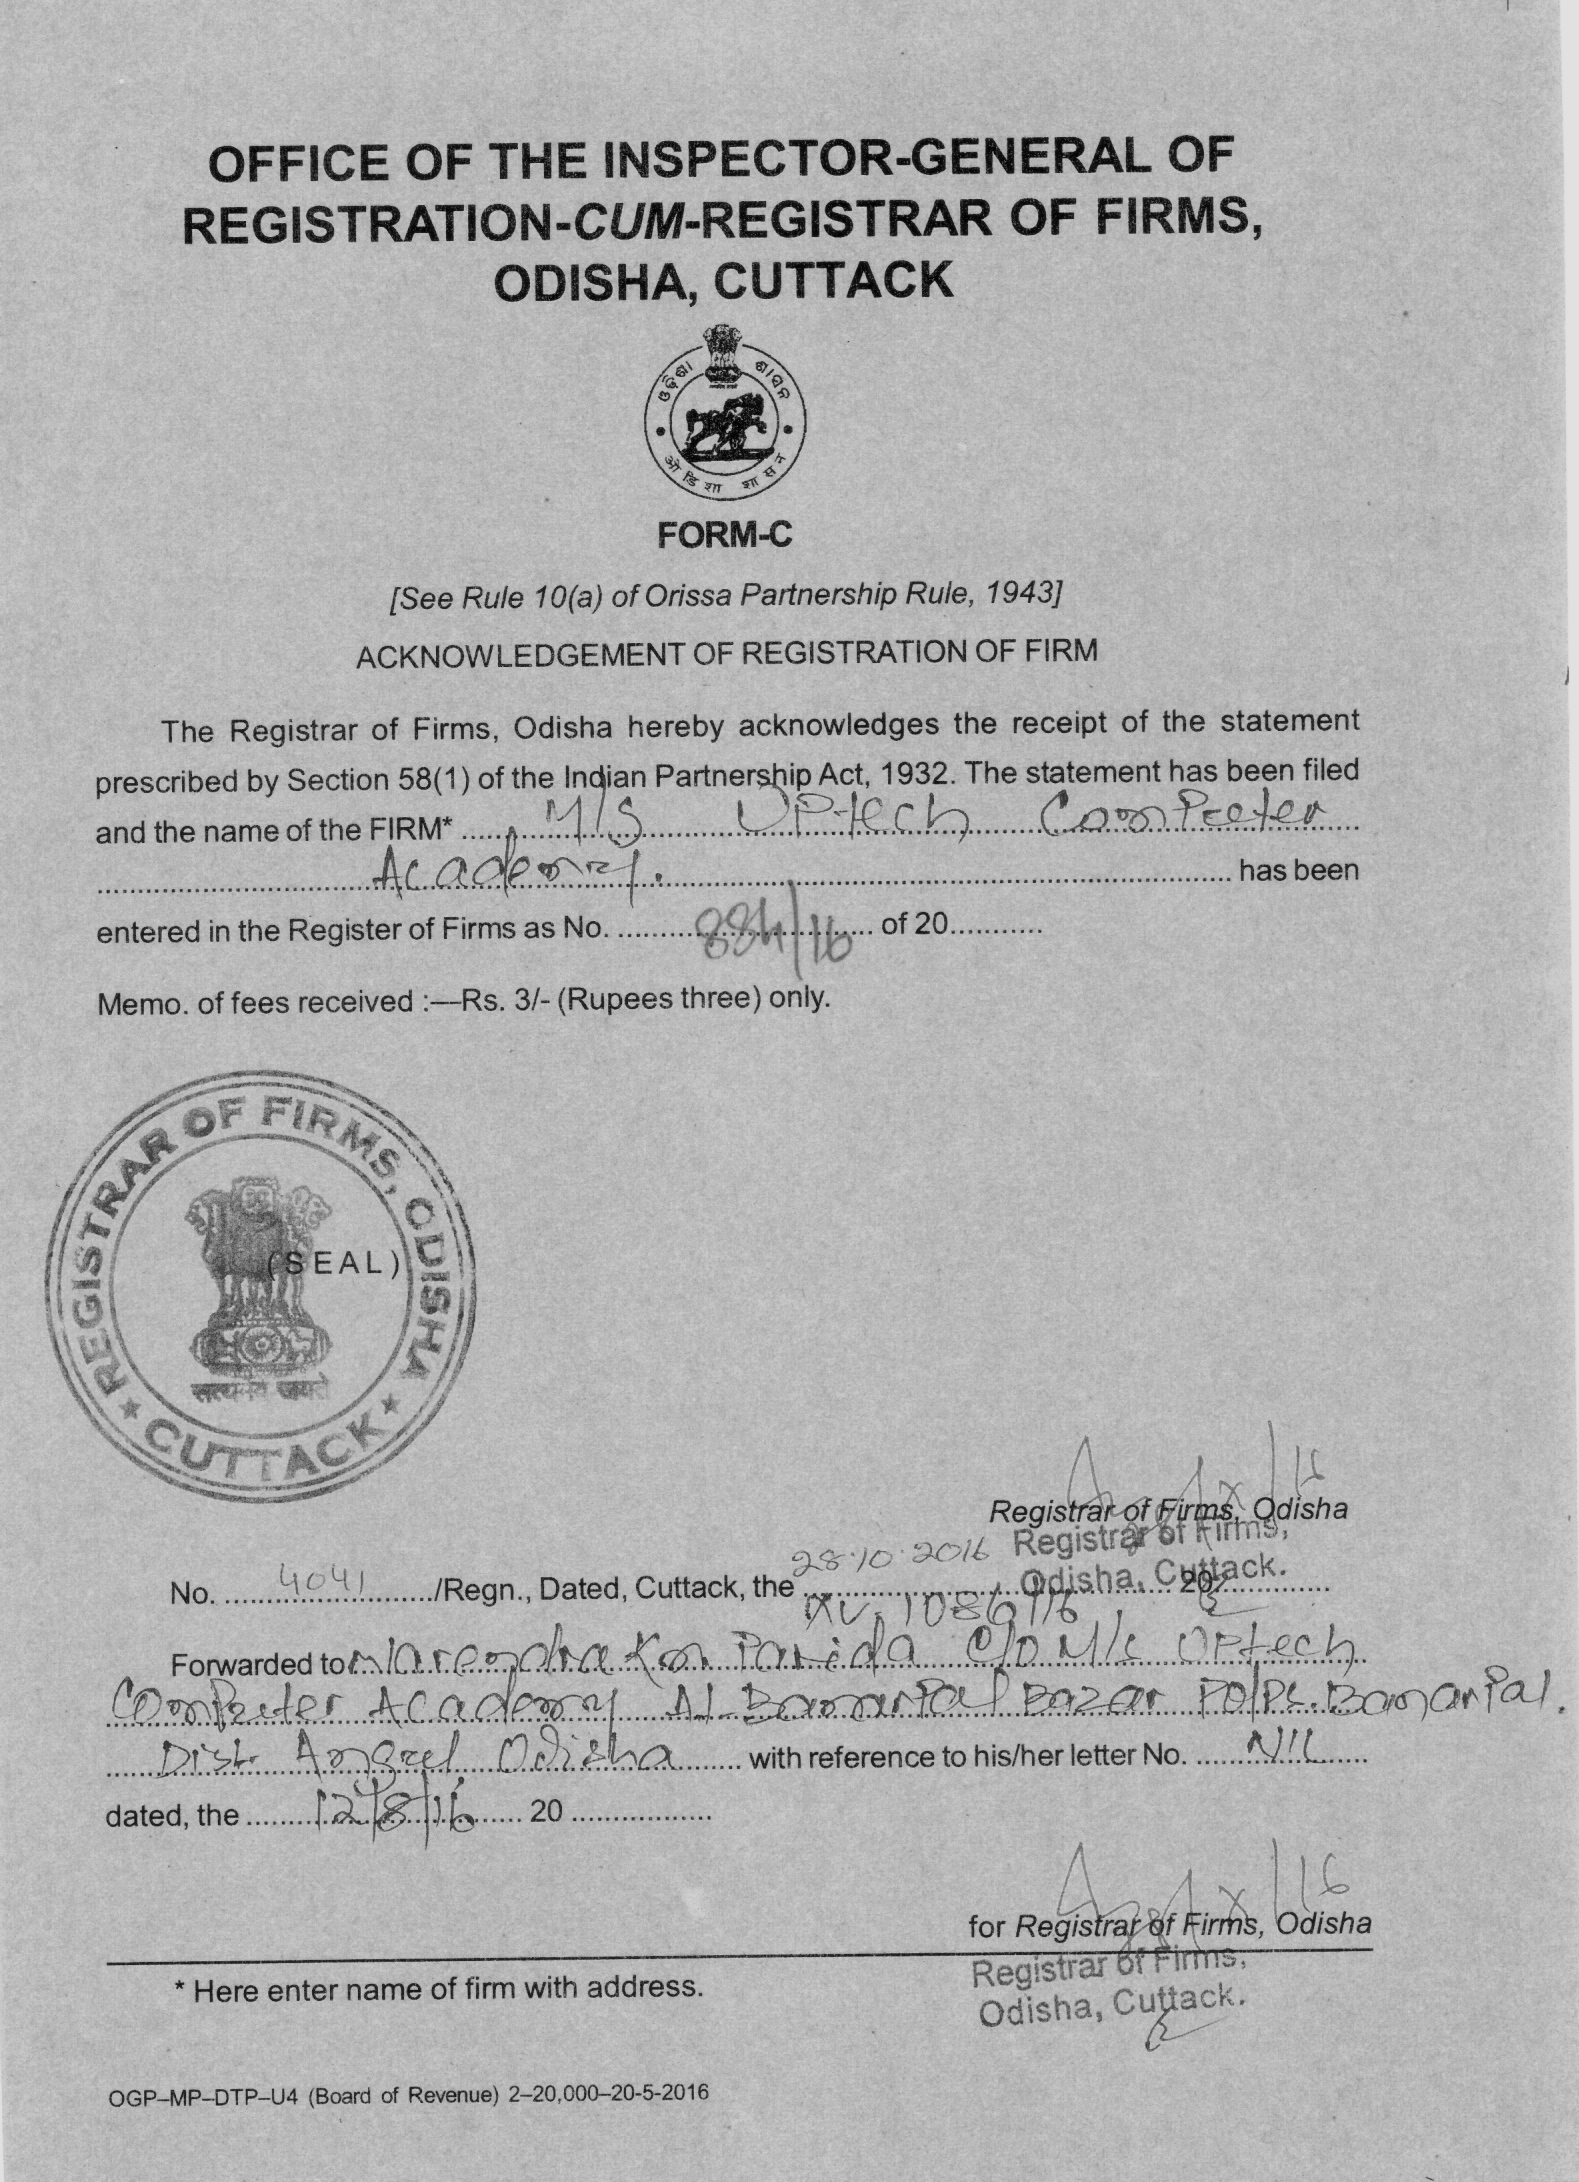 OFFICE OF THE INSPECTOR-GENERAL OF
REGISTRATION-CUM-REGISTRAR OF FIRMS,
ODISHA, CUTTACK
ଓଡ଼ିଶା ଶାସନ
ओडिशा शासन
FORM-C
[See Rule 10(a) of Orissa Partnership Rule, 1943]
ACKNOWLEDGEMENT OF REGISTRATION OF FIRM
The Registrar of Firms, Odisha hereby acknowledges the receipt of the statement
prescribed by Section 58(1) of the Indian Partnership Act, 1932. The statement has been filed
and the name of the FIRM* M/S UPtech Computer
Academy. has been
entered in the Register of Firms as No. 884/16 of 20
Memo. of fees received :—Rs. 3/- (Rupees three) only.
REGISTRAR OF FIRMS, ODISHA
(SEAL)
सत्यमेव जयते
★ CUTTACK ★
Registrar of Firms, Odisha
Registrar of Firms,
Odisha, Cuttack.
No. 4041 /Regn., Dated, Cuttack, the 28.10.2016 20
1086/16
Forwarded to Narendra Km Parida C/O M/s UPtech
Computer Academy At-Banarpal Bazar PO/Ps. Banarpal.
Dist. Angul Odisha with reference to his/her letter No. NIL
dated, the 12/8/16 20
for Registrar of Firms, Odisha
Registrar of Firms,
Odisha, Cuttack.
* Here enter name of firm with address.
OGP–MP–DTP–U4 (Board of Revenue) 2–20,000–20-5-2016